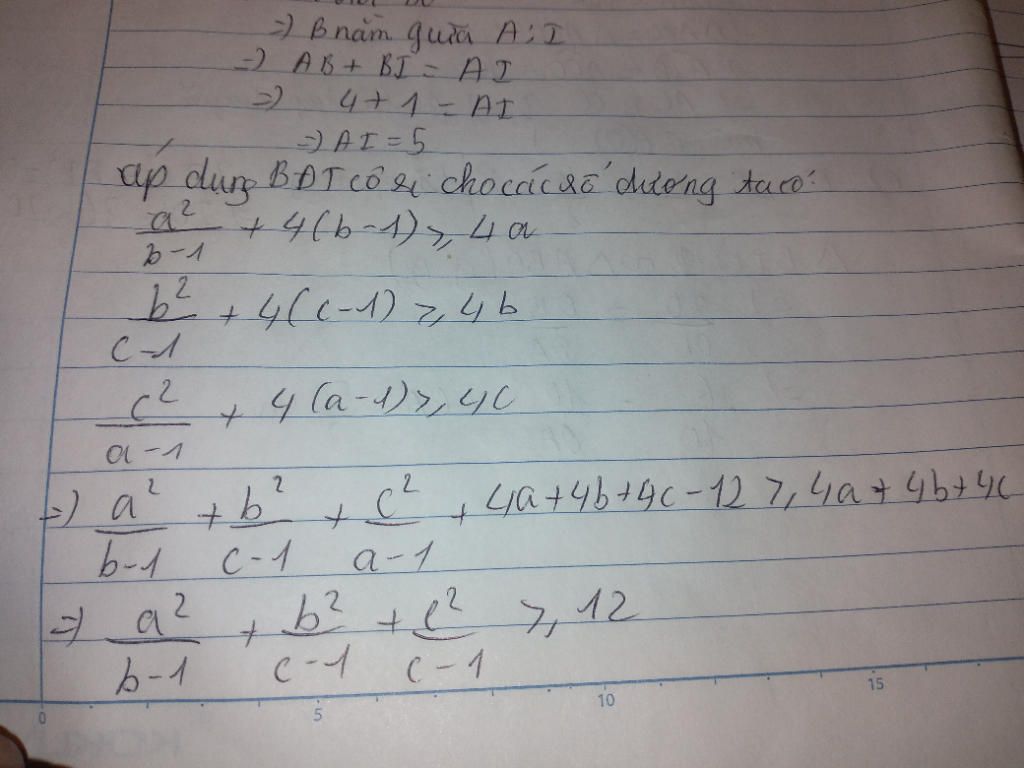 =) B nằm giữa A; I
=) AB + BI = AI
=) 4 + 1 = AI
=) AI = 5
áp dụng BĐT cô si cho các số dương ta có:
a²/(b-1) + 4(b-1) ≥ 4a
b²/(c-1) + 4(c-1) ≥ 4b
c²/(a-1) + 4(a-1) ≥ 4c
=) a²/(b-1) + b²/(c-1) + c²/(a-1) + 4a+4b+4c-12 ≥ 4a+4b+4c
=) a²/(b-1) + b²/(c-1) + c²/(c-1) ≥ 12
0 5 10 15